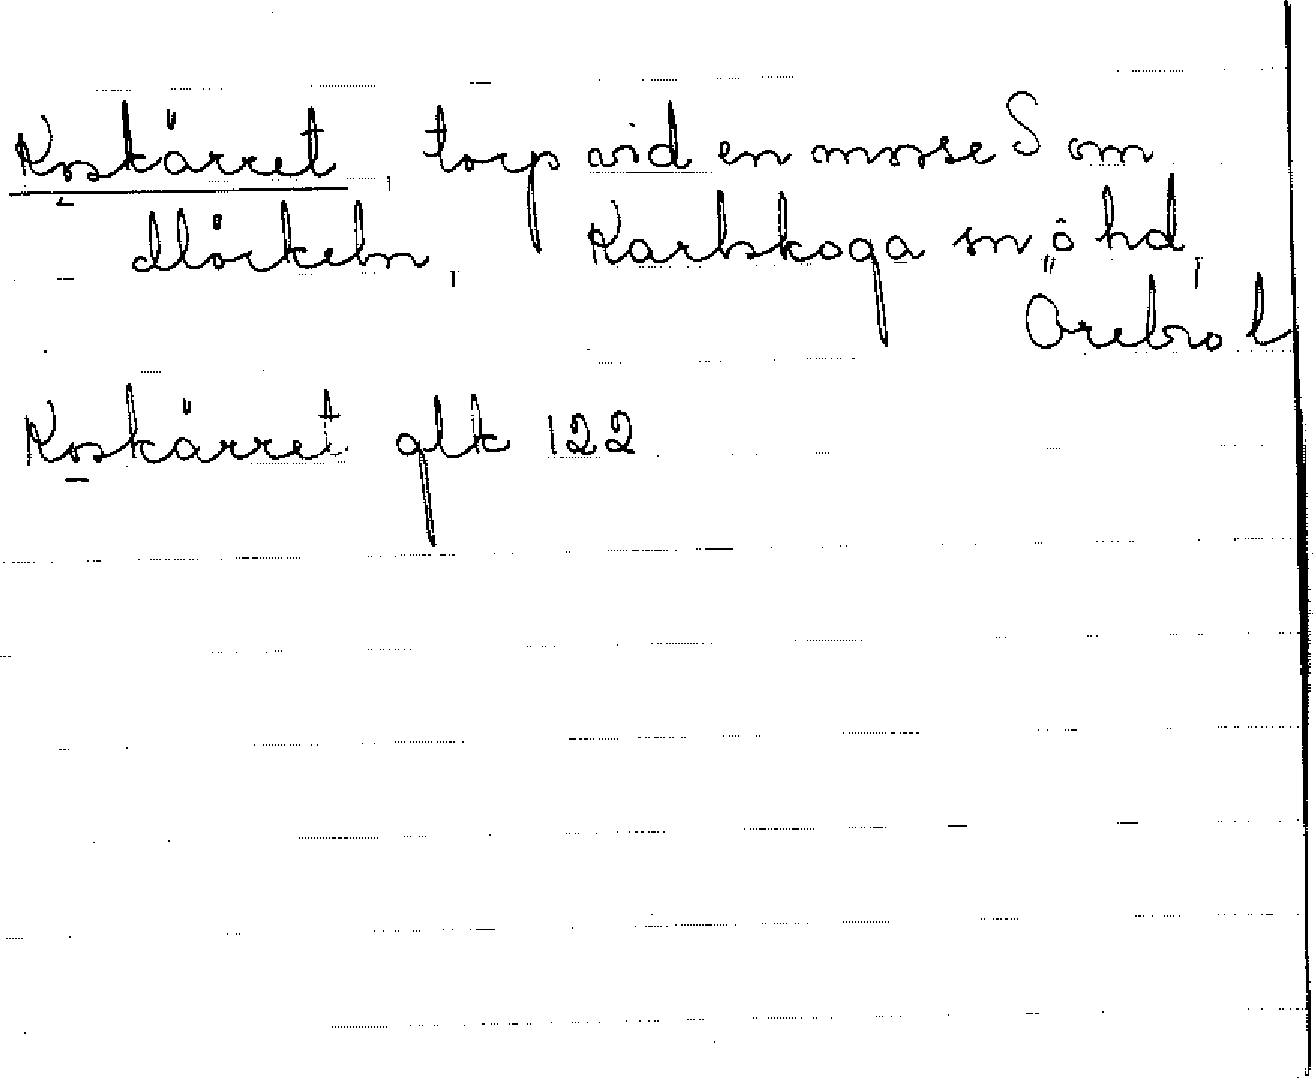 Koskärret, torp vid en mosse S om
Möckeln, Karlskoga sn o hd,
Örebro l
Koskärret glk 122